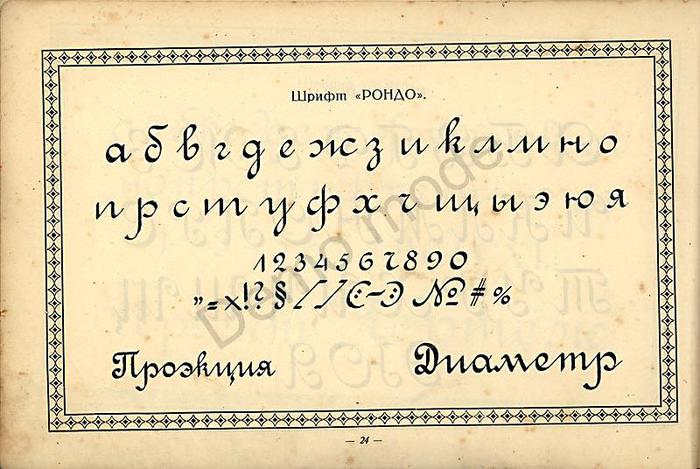 Шрифт «РОНДО».
а б в г д е ж з и к л м н о
п р с т у ф х ч щ ы э ю я
1 2 3 4 5 6 7 8 9 0
„=×!?§//(:-:) № # %
Проэкция Диаметр
— 24 —
Demo mode